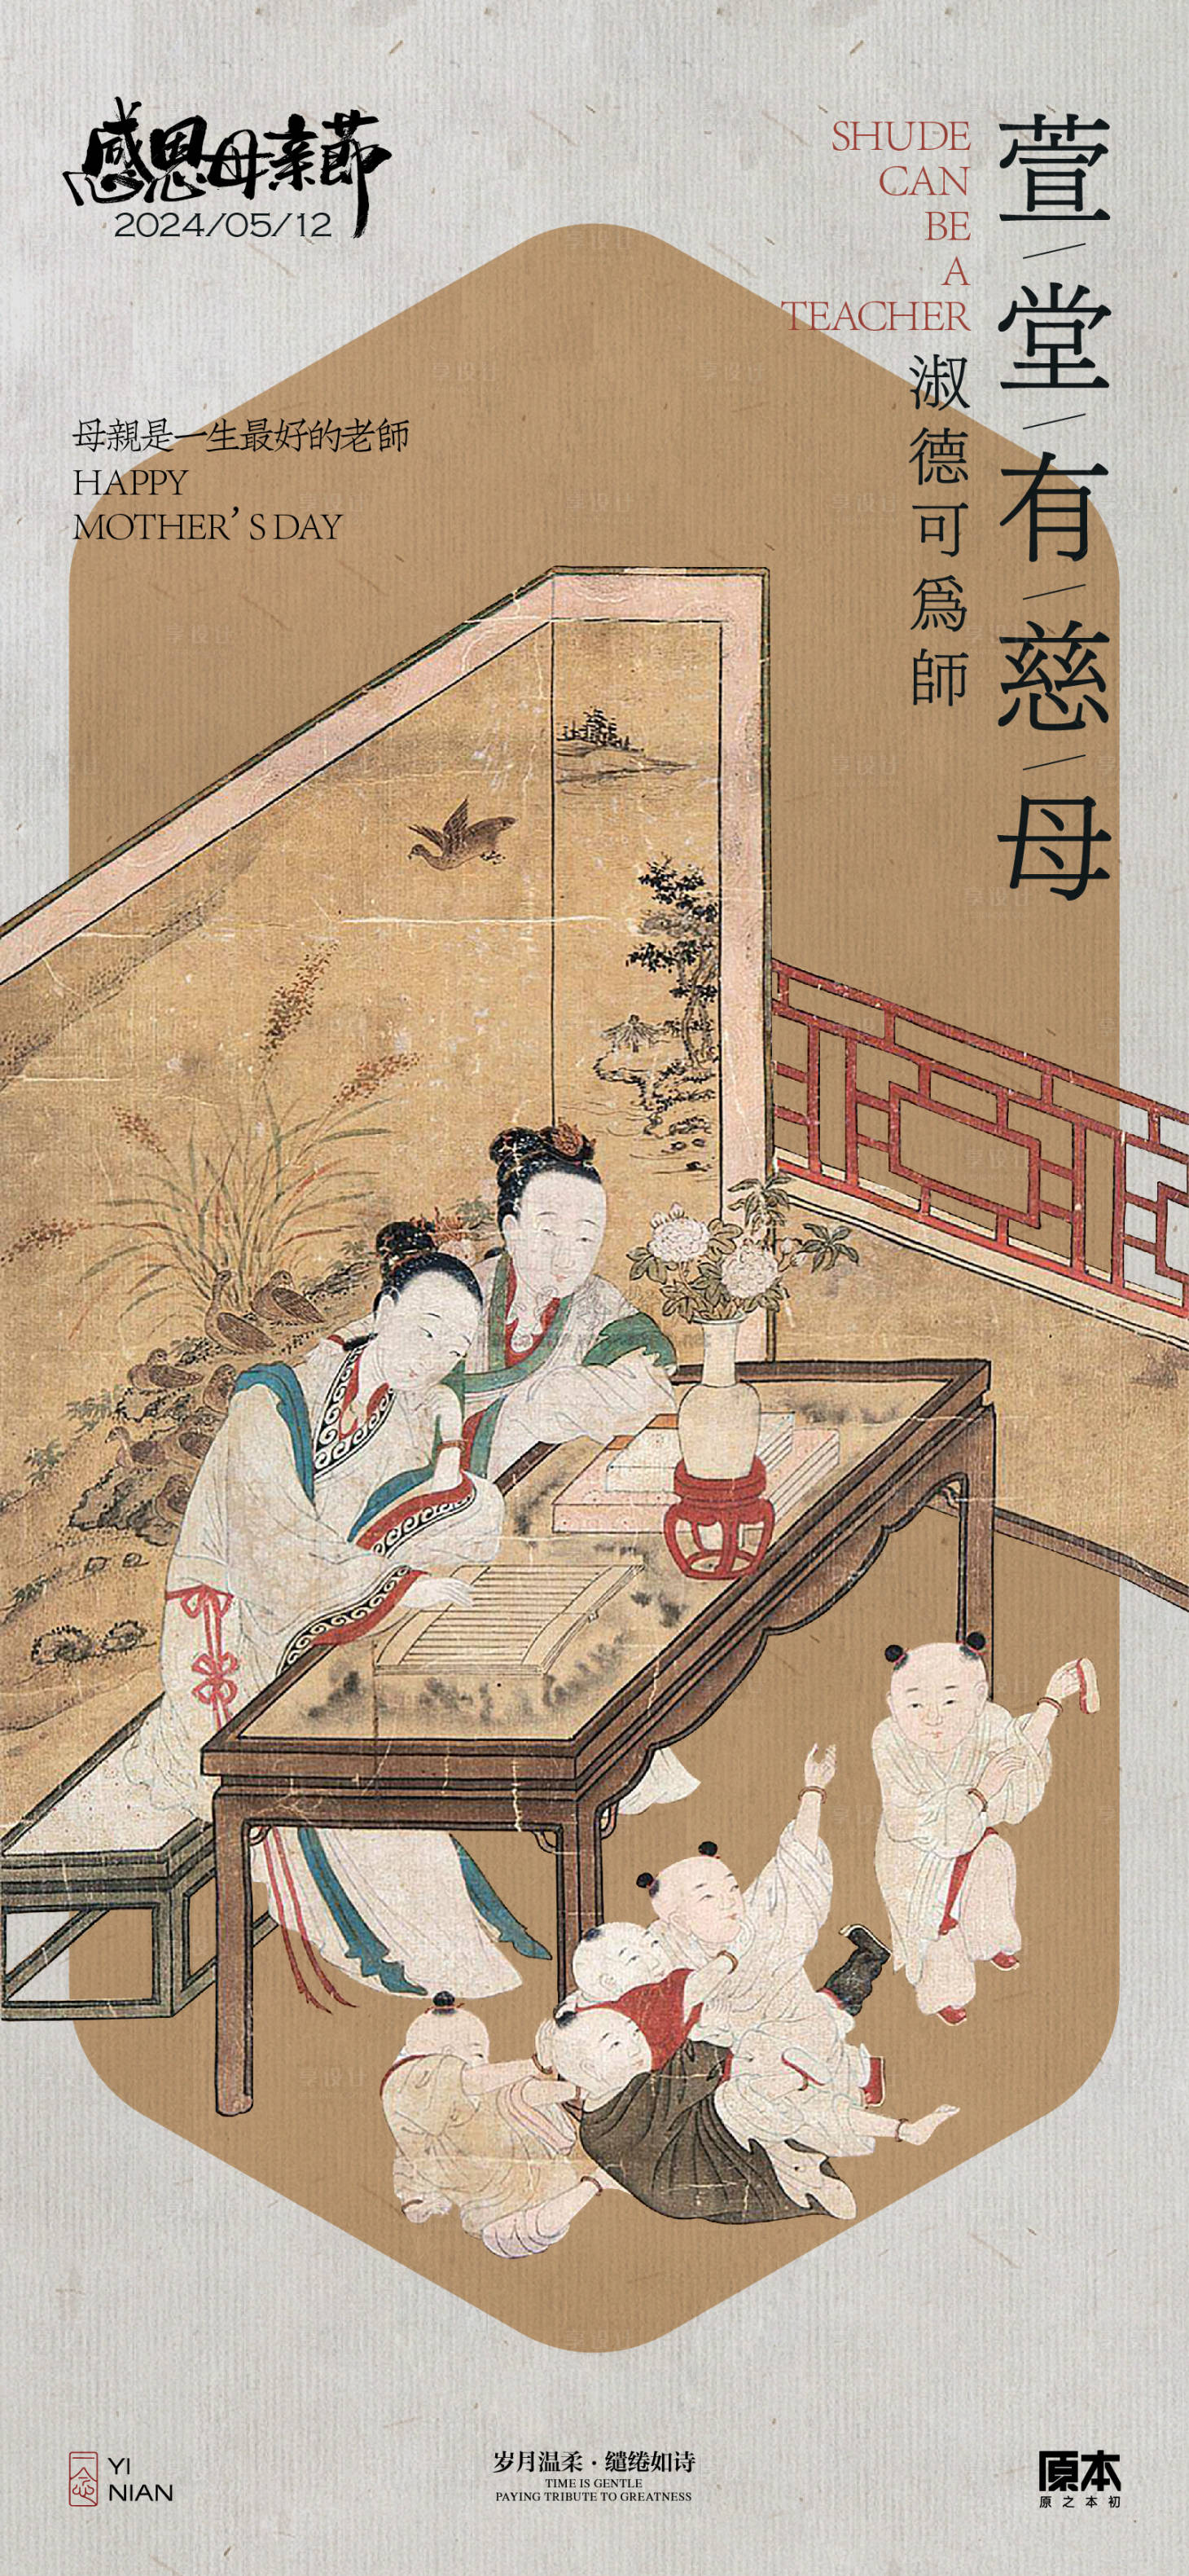 感恩母亲節
2024/05/12
SHUDE
CAN
BE
A
TEACHER
萱/堂/有/慈/母
淑德可爲師
母親是一生最好的老師
HAPPY
MOTHER’S DAY
一念
YI
NIAN
岁月温柔·缱绻如诗
TIME IS GENTLE
PAYING TRIBUTE TO GREATNESS
原本
原之本初
享设计